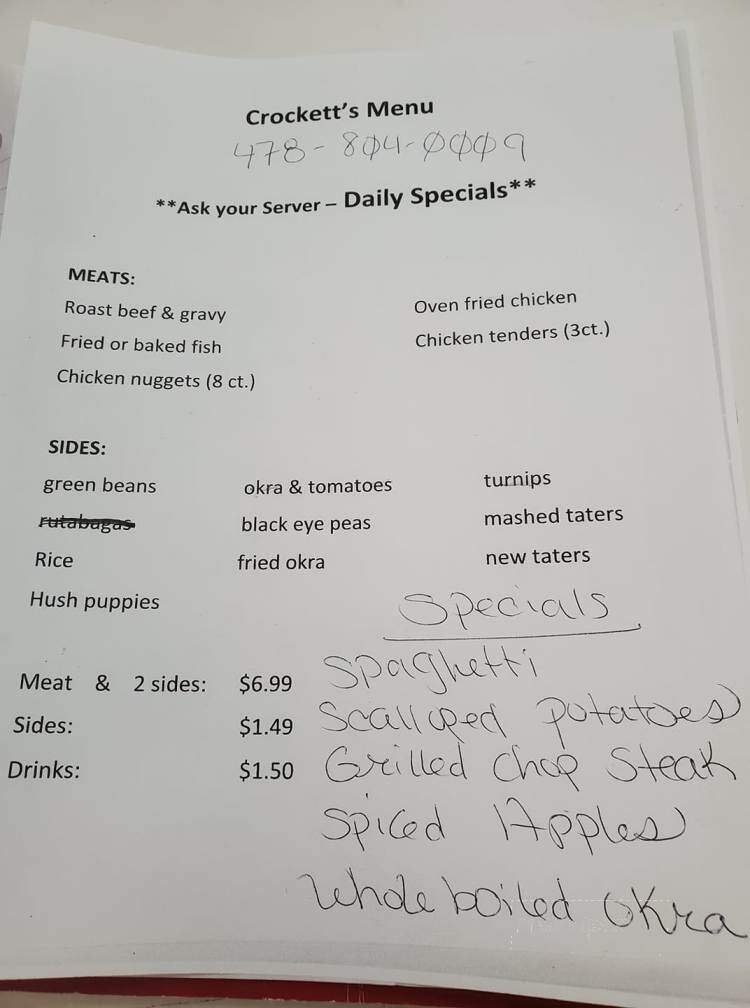 Crockett's Menu
478-804-0009
**Ask your Server – Daily Specials**
MEATS:
Roast beef & gravy
Oven fried chicken
Fried or baked fish
Chicken tenders (3ct.)
Chicken nuggets (8 ct.)
SIDES:
green beans okra & tomatoes turnips
rutabagas black eye peas mashed taters
Rice fried okra new taters
Hush puppies
Specials
Meat & 2 sides: $6.99 Spaghetti
Sides: $1.49 Scalloped potatoes
Drinks: $1.50 Grilled Chop Steak
Spiced Apples
Whole boiled okra